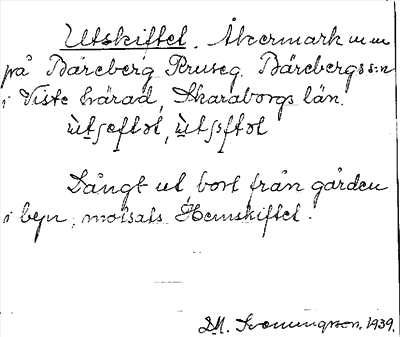 Utskiftet. Åkermark m m
på Bäreberg Kruseg. Bärebergs s:n
i Viste härad, Skaraborgs län.
Långt ut bort från gården
i byn, motsats Hemskiftet.
D.M. 1939.